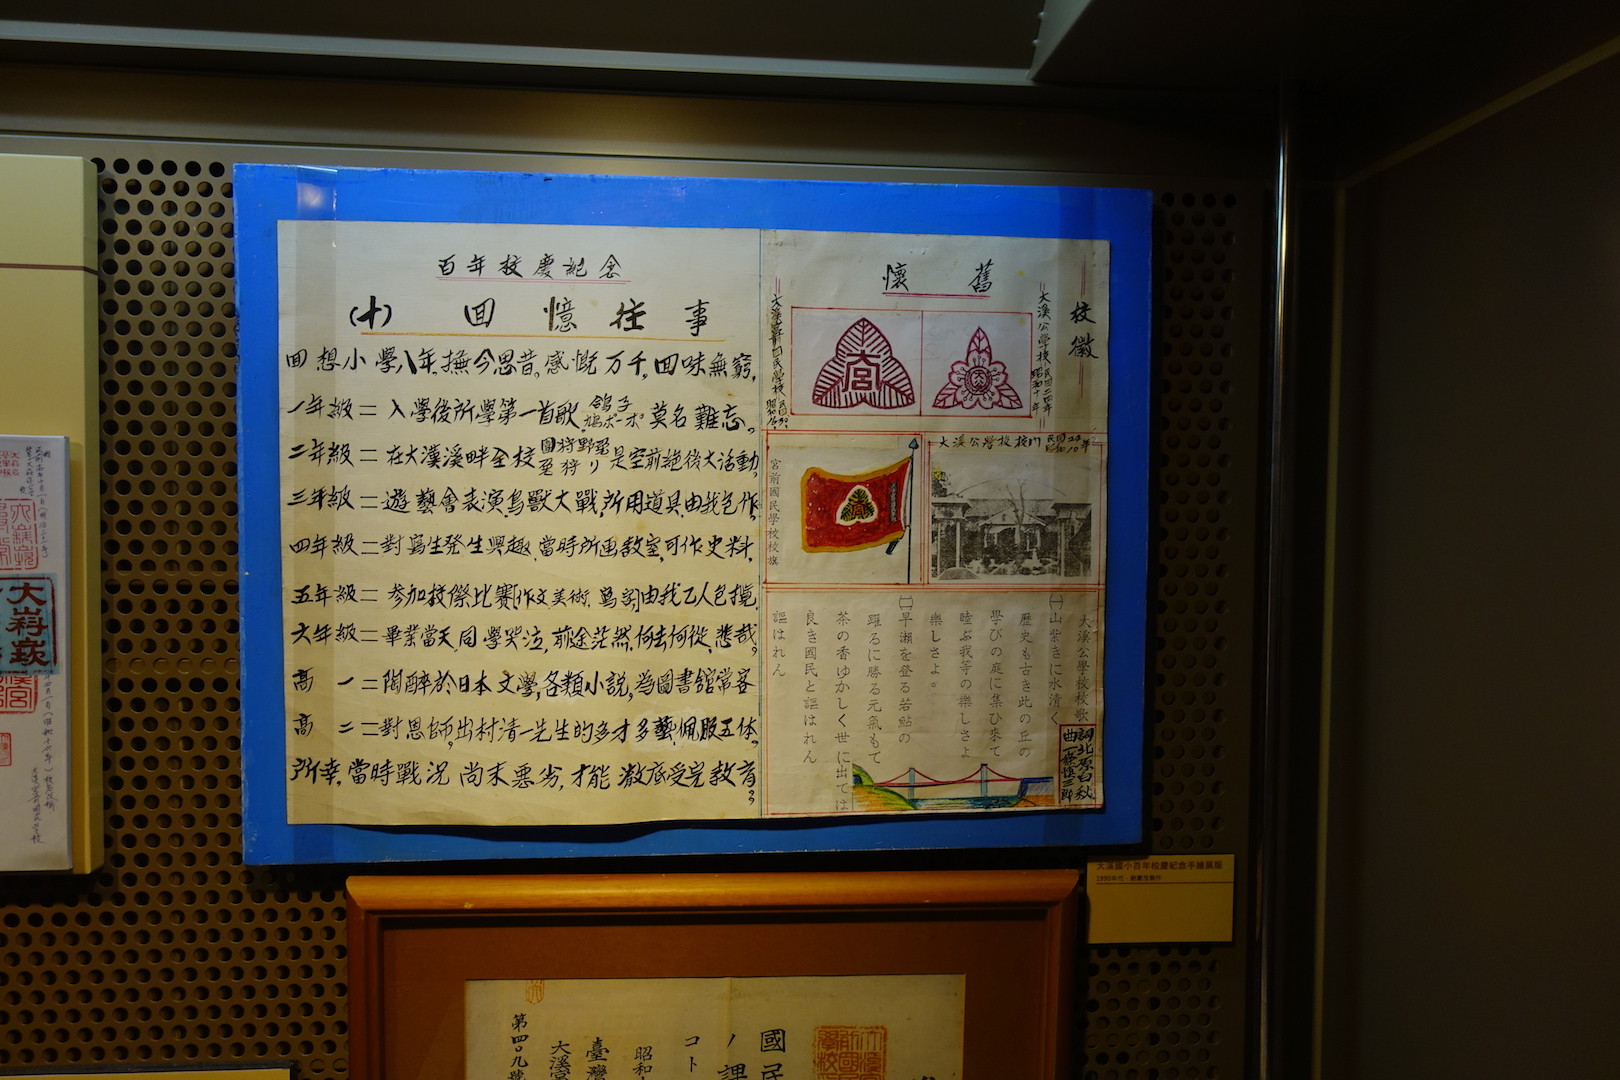 百年校慶紀念
(十) 回憶往事
回想小學八年,撫今思昔,感慨万千,回味無窮,
一年級=入學後所學第一首歌 鴿子 鳩ポーポ 莫名難忘。
二年級=在大漢溪畔全校 是空前絶後大活動,
三年級=遊藝會表演,鳥獸大戰,所用道具,由我包作,
四年級=對寫生発生興趣,當時所画教室,可作史料,
五年級=参加校際比賽(作文美術,由我乙人包攬,
六年級=畢業當天,同學哭泣,前途茫然,何去何從,悲哉,
高一=陶醉於日本文學,各類小説,為圖書舘常客
高二=對恩師,出村清一先生的多才多藝,佩服五体,
所幸,當時戰況尚未悪劣,才能澈底受完教育,
懷舊
校徽
大溪公學校 民国二四年 昭和十年
宮
大溪公學校校門
宮前國民學校校旗
大溪公學校校歌
詞北原白秋
曲一條慎三郎
㈠山紫きに水清く
歴史も古き此の丘の
學びの庭に集ひ來て
睦ぶ我等の樂しさよ
樂しさよ。
㈡早瀬を登る若鮎の
躍るに勝る元氣もて
茶の香ゆかしく世に出ては
良き國民と謳はれん
謳はれん
大溪國小百年校慶紀念手繪展版
大嵙崁
國民
ノ課
コト
昭和
臺灣
大溪宮
第四〇九號